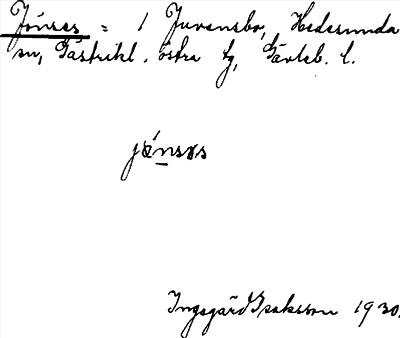 Jönses = i Juvansbo, Hedesunda
sn, Gästrikl. östra tg, Gävleb. l.
jǿnsɤs
Ingegärd Isaksson 1930.